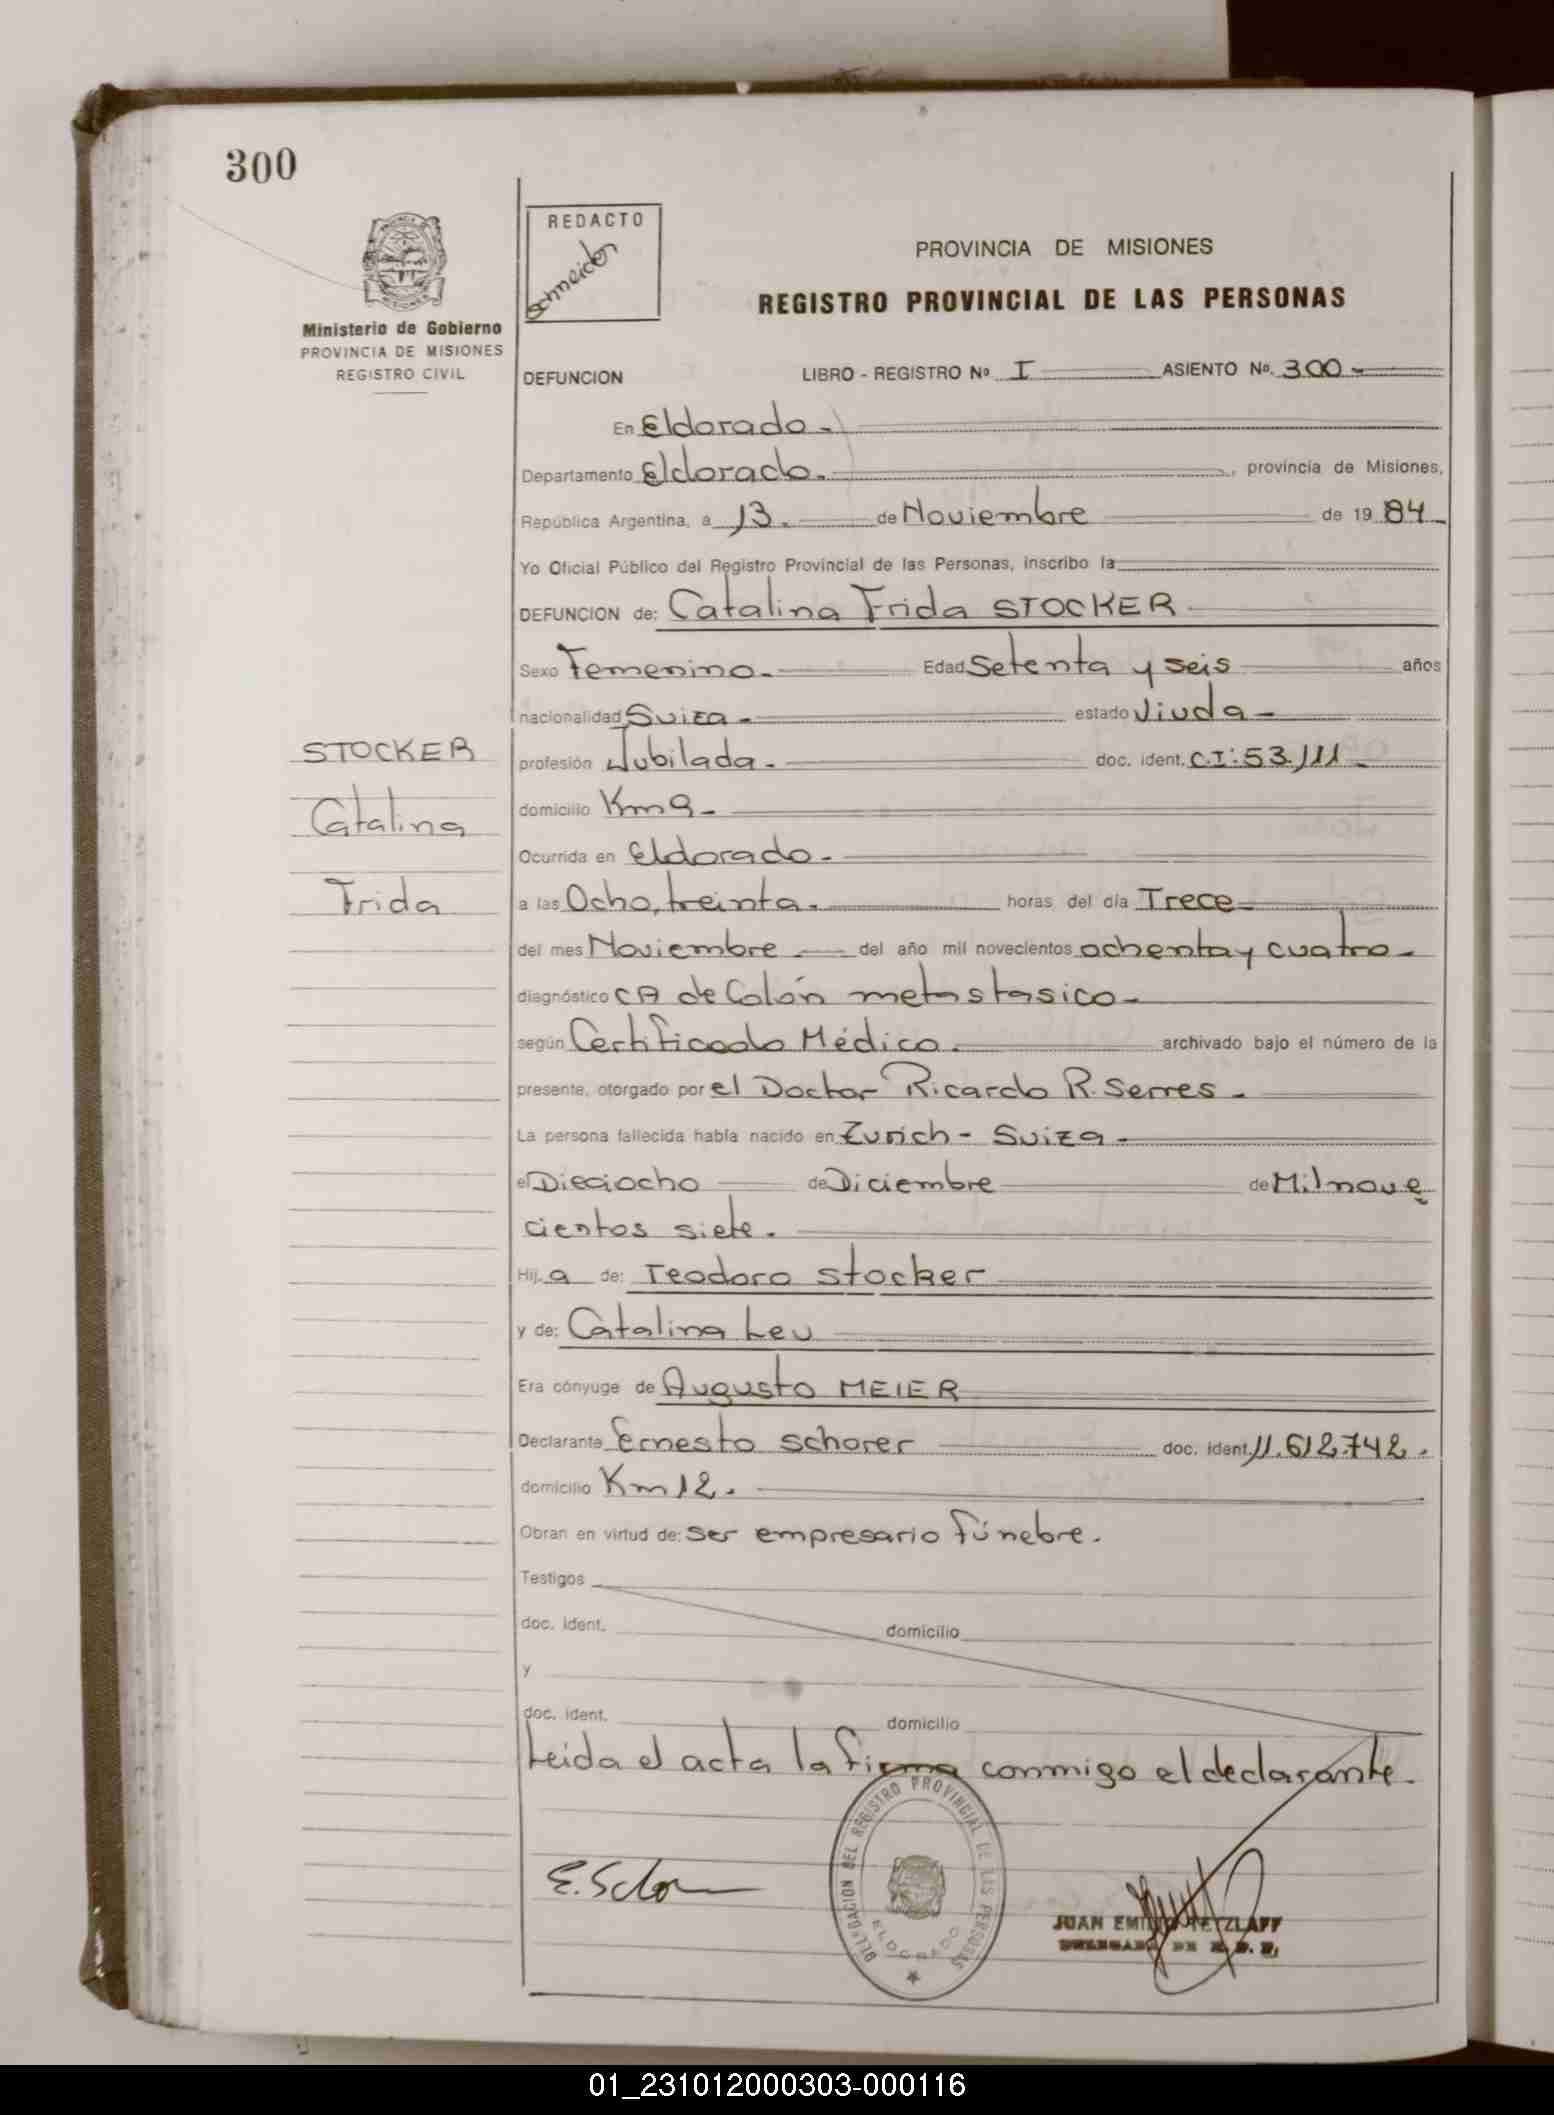 300
REDACTO
Schneider
PROVINCIA DE MISIONES
REGISTRO PROVINCIAL DE LAS PERSONAS
Ministerio de Gobierno
PROVINCIA DE MISIONES
REGISTRO CIVIL
DEFUNCION LIBRO - REGISTRO Nº I ASIENTO Nº. 300-
En Eldorado.
Departamento Eldorado. , provincia de Misiones,
República Argentina, a 13. de Noviembre de 19 84
Yo Oficial Público del Registro Provincial de las Personas, inscribo la
DEFUNCION de: Catalina Frida STOCKER
Sexo Femenino. Edad Setenta y seis años
nacionalidad Suiza - estado Viuda -
STOCKER
Catalina
Frida
profesión Jubilada. doc. ident. C.I: 53.111
domicilio Km 9-
Ocurrida en Eldorado.
a las Ocho, treinta. horas del día Trece
del mes Noviembre del año mil novecientos ochenta y cuatro
diagnóstico CA de Colón metastasico
según Certificado Médico. archivado bajo el número de la
presente, otorgado por el Doctor Ricardo R. Serres.
La persona fallecida había nacido en Zurich - Suiza
el Dieciocho de Diciembre de Mil nove
cientos siete.
Hij a de: Teodoro Stocker
y de: Catalina Leu
Era cónyuge de Augusto MEIER
Declarante Ernesto Schorer doc. ident. 11.612.742.
domicilio Km 12.
Obran en virtud de: Ser empresario fúnebre.
Testigos
doc. ident. domicilio
y
doc. ident. domicilio
Leida el acta la firma conmigo el declarante.
DELEGACION DEL REGISTRO PROVINCIAL DE LAS PERSONAS
ELDORADO
JUAN EMILIO TETZLAFF
DELEGADO DE R. P. P.
01_231012000303-000116